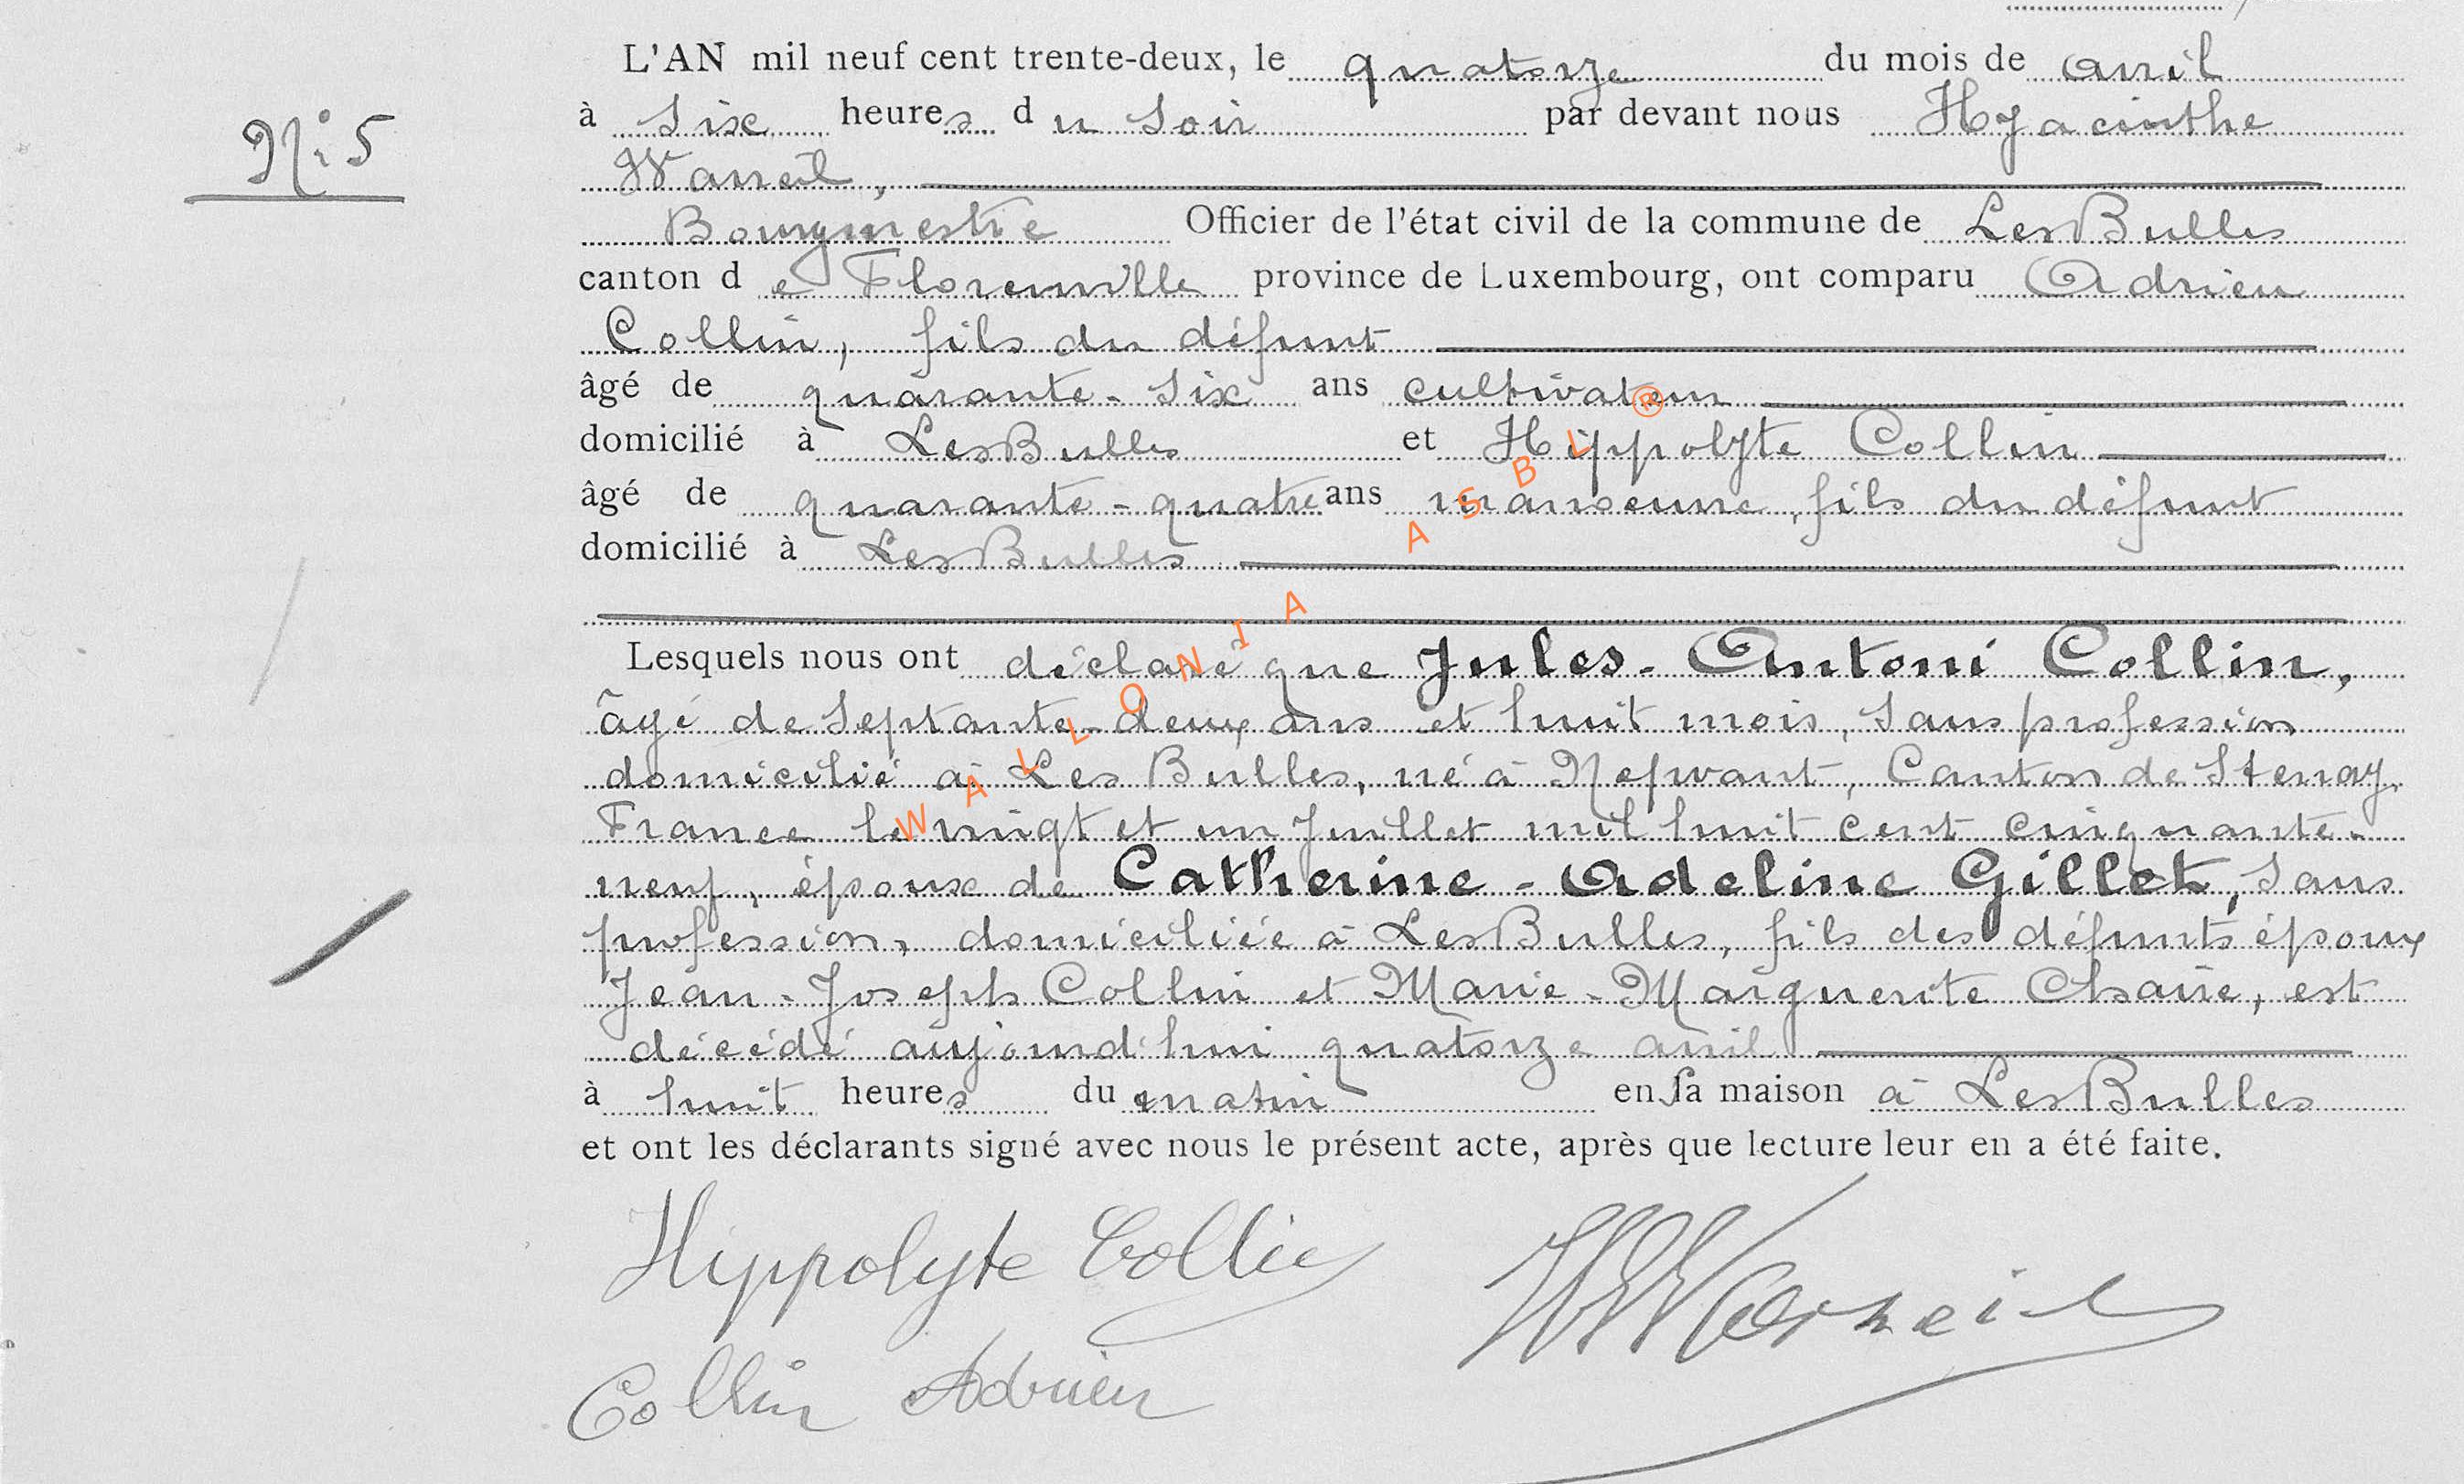 L'AN mil neuf cent trente-deux, le quatorze du mois de avril
à six heures du soir par devant nous Hyacinthe
N° 5
Warneil,
Bourgmestre Officier de l'état civil de la commune de Les Bulles
canton de Florenville province de Luxembourg, ont comparu Adrien
Collin, fils du défunt
âgé de quarante-six ans cultivateur
domicilié à Les Bulles et Hippolyte Collin
âgé de quarante-quatre ans manoeuvre, fils du défunt
domicilié à Les Bulles
Lesquels nous ont déclaré que Jules-Antoni Collin,
âgé de septante-deux ans et huit mois, sans profession
domicilié à Les Bulles, né à Nepvant, Canton de Stenay,
France le vingt et un Juillet mil huit cent cinquante-
neuf, époux de Catherine-Adeline Gillet, sans
profession, domiciliée à Les Bulles, fils des défunts époux
Jean-Joseph Collin et Marie-Marguerite, est
décédé aujourd'hui quatorze avril
à huit heures du matin en sa maison à Les Bulles
et ont les déclarants signé avec nous le présent acte, après que lecture leur en a été faite.
Hippolyte Collin
HWarneil
Collin Adrien
WALLONIA ASBL ®